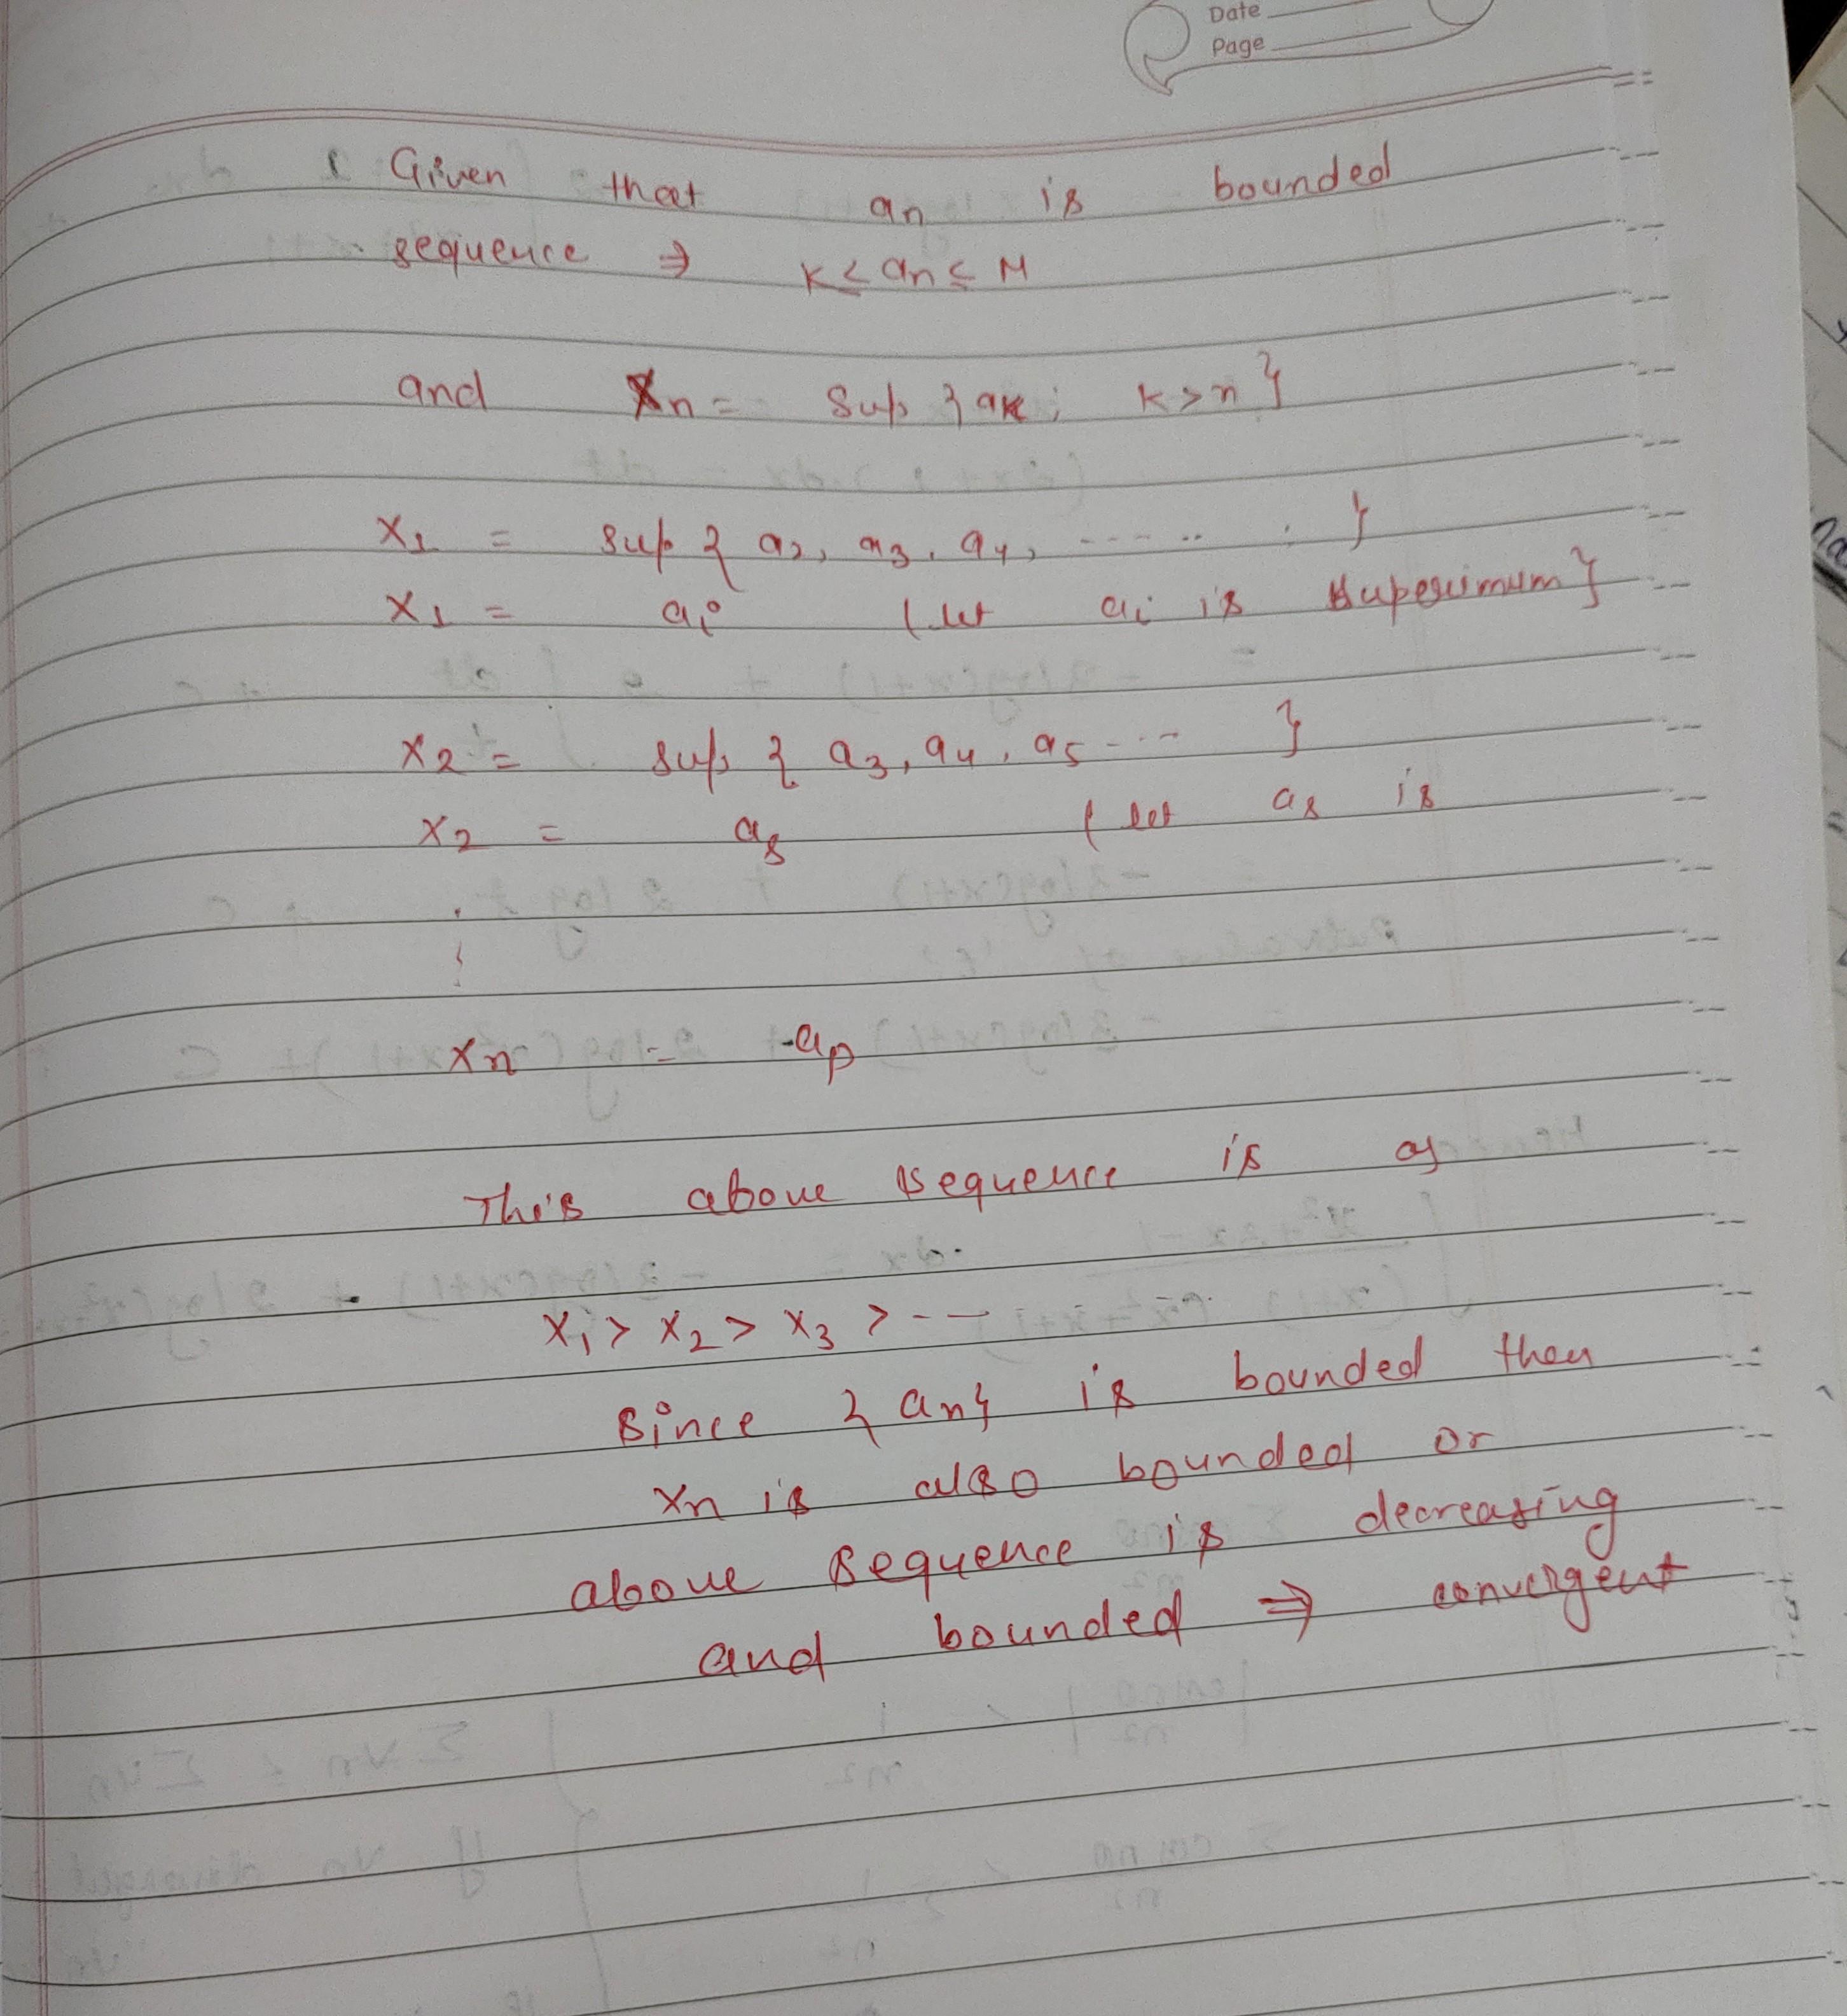 Date
Page
Given that an is bounded
sequence ⇒ K ≤ an ≤ M
and Xn = Sup { ak ; k > n }
X1 = sup { a2, a3, a4, ------- }
X1 = ai (let ai is superimum }
X2 = sup { a3, a4, a5 ---- }
X2 = as ( let as is
Xn = ap
This above sequence is as
X1 > X2 > X3 > ---
Since { an } is bounded then
Xn is also bounded or
above sequence is decreasing
and bounded ⇒ convergent